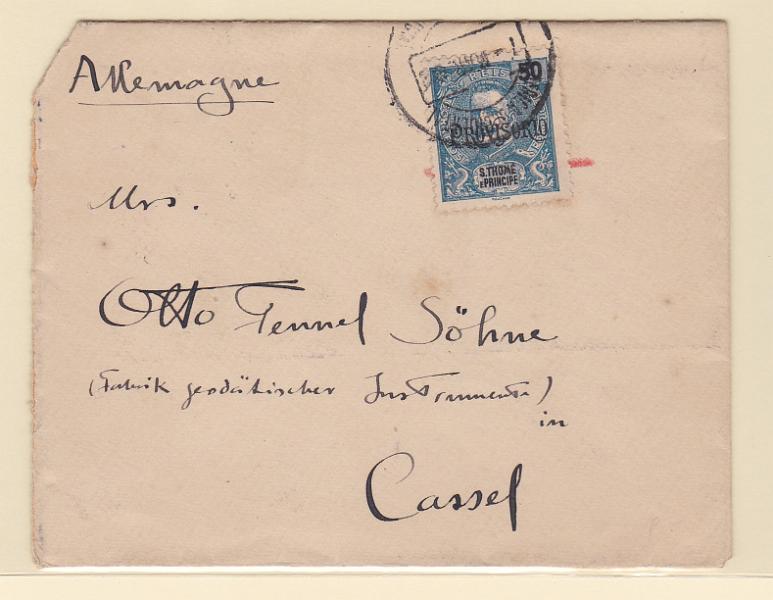 Allemagne
REIS 50
PROVISORIO
S. THOMÉ
E PRINCIPE
Mrs.
Otto Fennel Söhne
(Fabrik geodätischer Instrumente)
in
Cassel